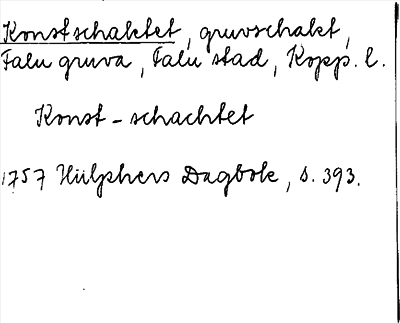 Konstschaktet, gruvschakt,
Falu gruva, Falu stad, Kopp. l.
Konst-schachtet
1757 Hülphers Dagbok, s. 393.